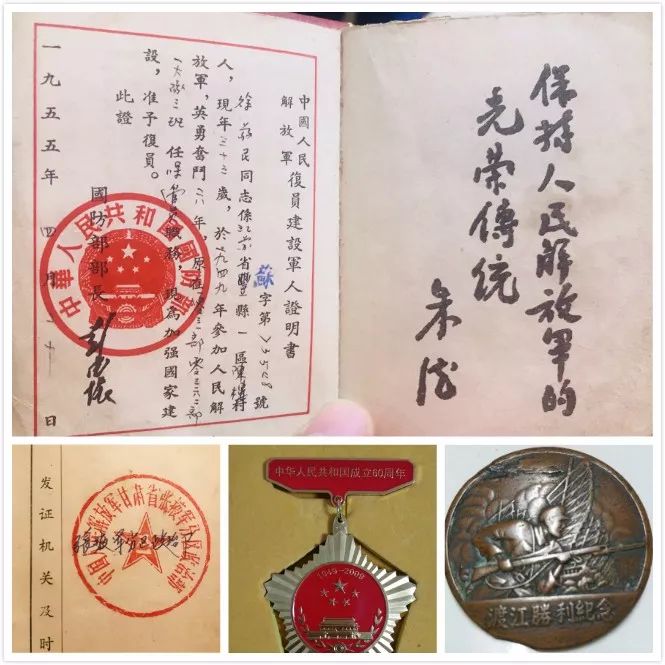 中國人民
解放軍 復員建設軍人證明書
蘇字第 號
民同志係江蘇省豐縣一區陳樓村
人，現年三十三歲，於一九四九年參加人民解
放軍，英勇奮鬥 年，原在 部
三班任 職務，現為加强國家建
設，准予復員。
此證
國防部部長 彭德懷
一九五五年四月 日
中華人民共和國國防部
保持人民解放軍的
光榮傳統
朱德
发证机关及时
中国人民解放军甘肃省张掖军分区政治部
张掖军分区政治部
中华人民共和国成立60周年
1949-2009
渡江勝利紀念